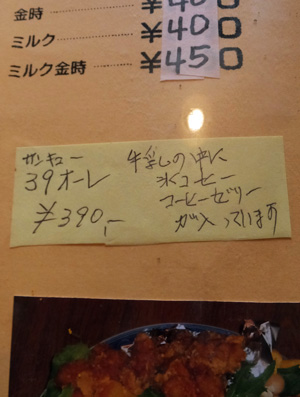 金時 ¥400
ミルク ¥400
ミルク金時 ¥450
サンキュー
39オーレ
¥390,-
牛乳の中に
氷コーヒー
コーヒーゼリー
が入っています